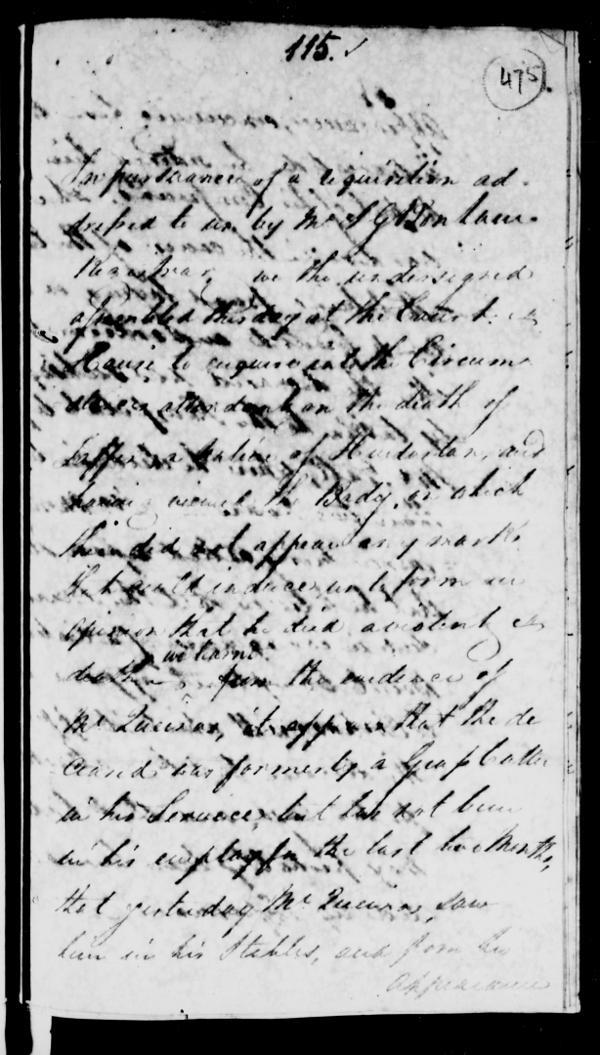 115.
475.
In pursuance of a requisition ad-
dressed to us by Mr S G Bonham
Registrar, we the undersigned
assembled this day at the Court
House to enquire into the Circum
stances attendant on the death of
a native of Hindostan, and
having viewed the Body, on which
there did not appear any marks
that could induce us to form an
opinion that he died a violent
death we learn from the evidence of
Mr Queiros, it appears that the de
ceased was formerly a Grass Cutter
in his Service, but has not been
in his employ for the last two Months,
that yesterday Mr Queiros, saw
him in his Stables, and from his
appearance